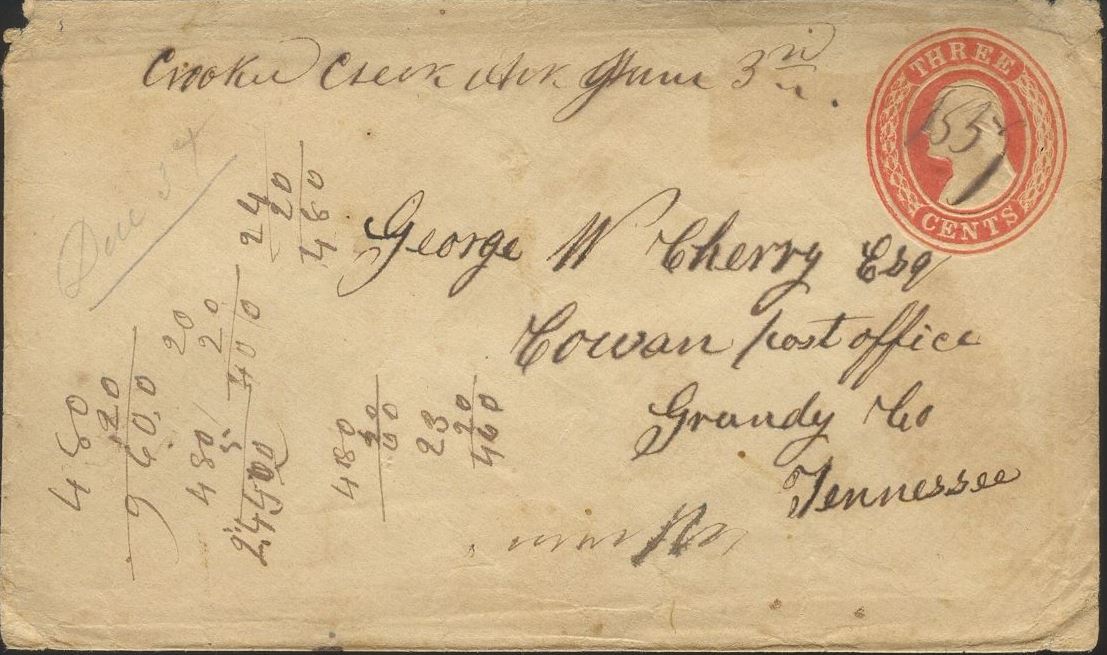 Crooked Creek Ark June 3rd.
THREE
1857
CENTS
George W Cherry Esq
Cowan post office
Grundy Co
Tennessee
Due
24
20
480
20
20
400
480
20
9600
480
480
20
00
23
20
460